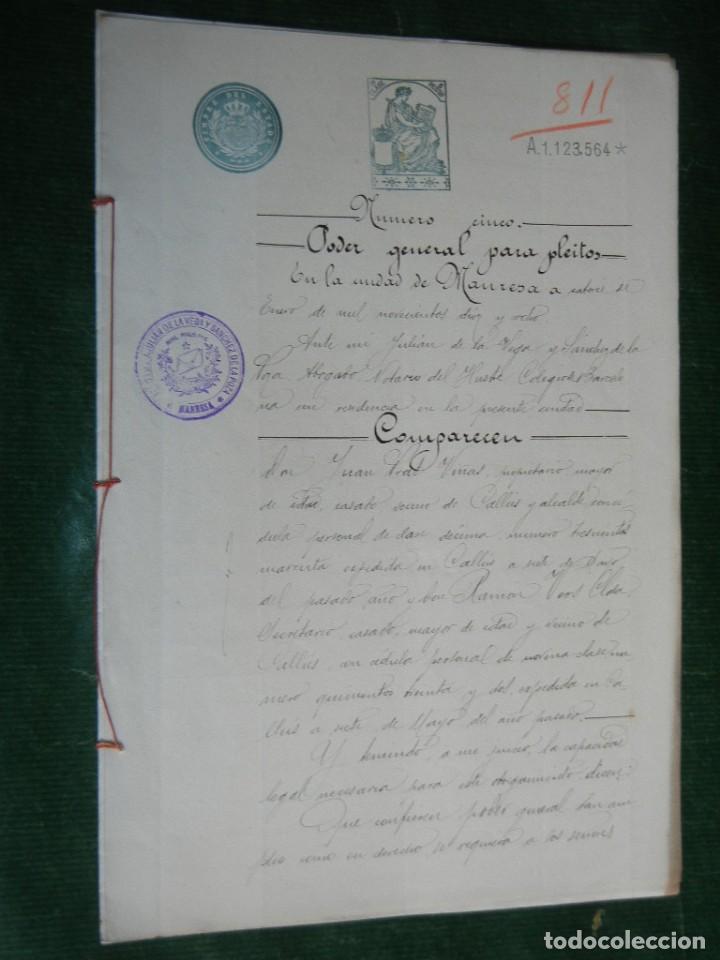 TIMBRE DEL ESTADO
811
A.1.123.564*
Numero cinco.
Poder general para pleitos
En la ciudad de Manresa a catorce de
Enero de mil novecientos diez y ocho
Ante mi Julián de la Vega y Sánchez de la
Poza Abogado Notario del Ilustre Colegio de Barcelo
na con residencia en la presente ciudad
JULIAN DE LA VEGA Y SANCHEZ DE LA POZA
MANRESA
Comparecen
Don Juan Prat Viñas, propietario mayor
de edad, casado, vecino de Callús y alcalde con cé
dula personal de clase décima, numero trescientos
expedida en Callús a siete de Mayo
del pasado año y Don Ramon Vers Closa
Secretario, casado, mayor de edad y vecino de
Callús, con cédula personal de novena clase nu
mero quinientos treinta y dos, expedida en Ca
llús a siete de Mayo del año pasado.
Y teniendo, a mi juicio, la capacidad
legal necesaria para este otorgamiento, dicen:
Que confieren poder general tan am
plio como en derecho se requiera a los señores
todocoleccion.net